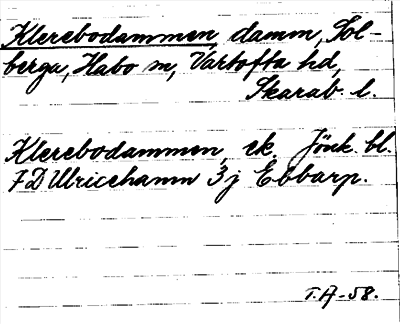 Klerebodammen, damm, Sol-
berga, Habo sn, Vartofta hd,
Skarab. l.
Klerebodammen ek. Jönk. bl.
7D Ulricehamn 3j Ebbarp.
T.A-58.